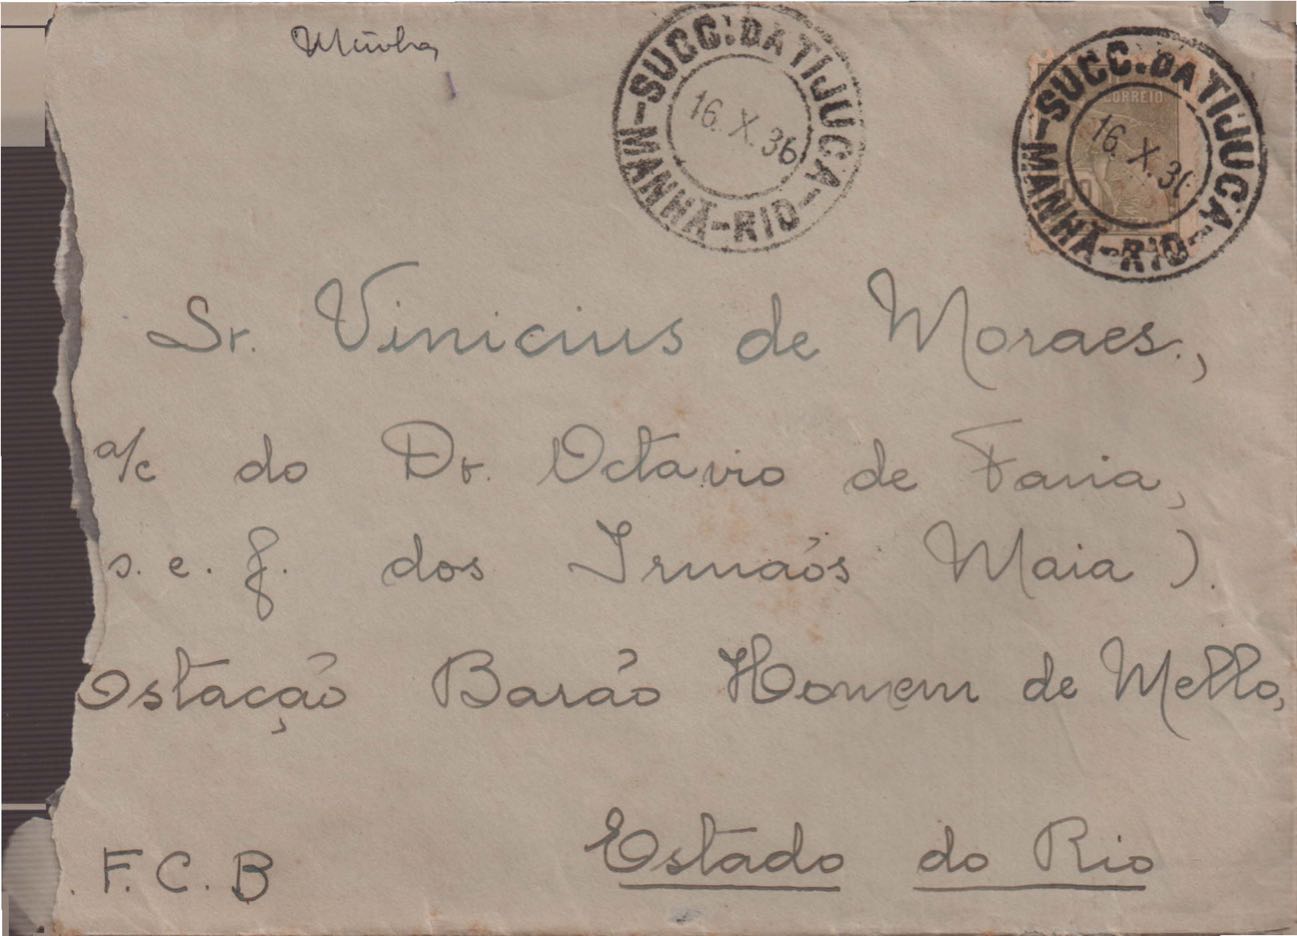 Minha
-SUCC. DA TIJUCA-
16. X. 36
MANHÃ-RIO-
CORREIO
-SUCC. DA TIJUCA-
16. X. 36
MANHÃ-RIO-
Sr. Vinicius de Moraes.,
a/c do Dr. Octavio de Faria,
s. e. f. dos Irmãos Maia).
Estação Barão Homem de Mello,
Estado do Rio
. F. C. B